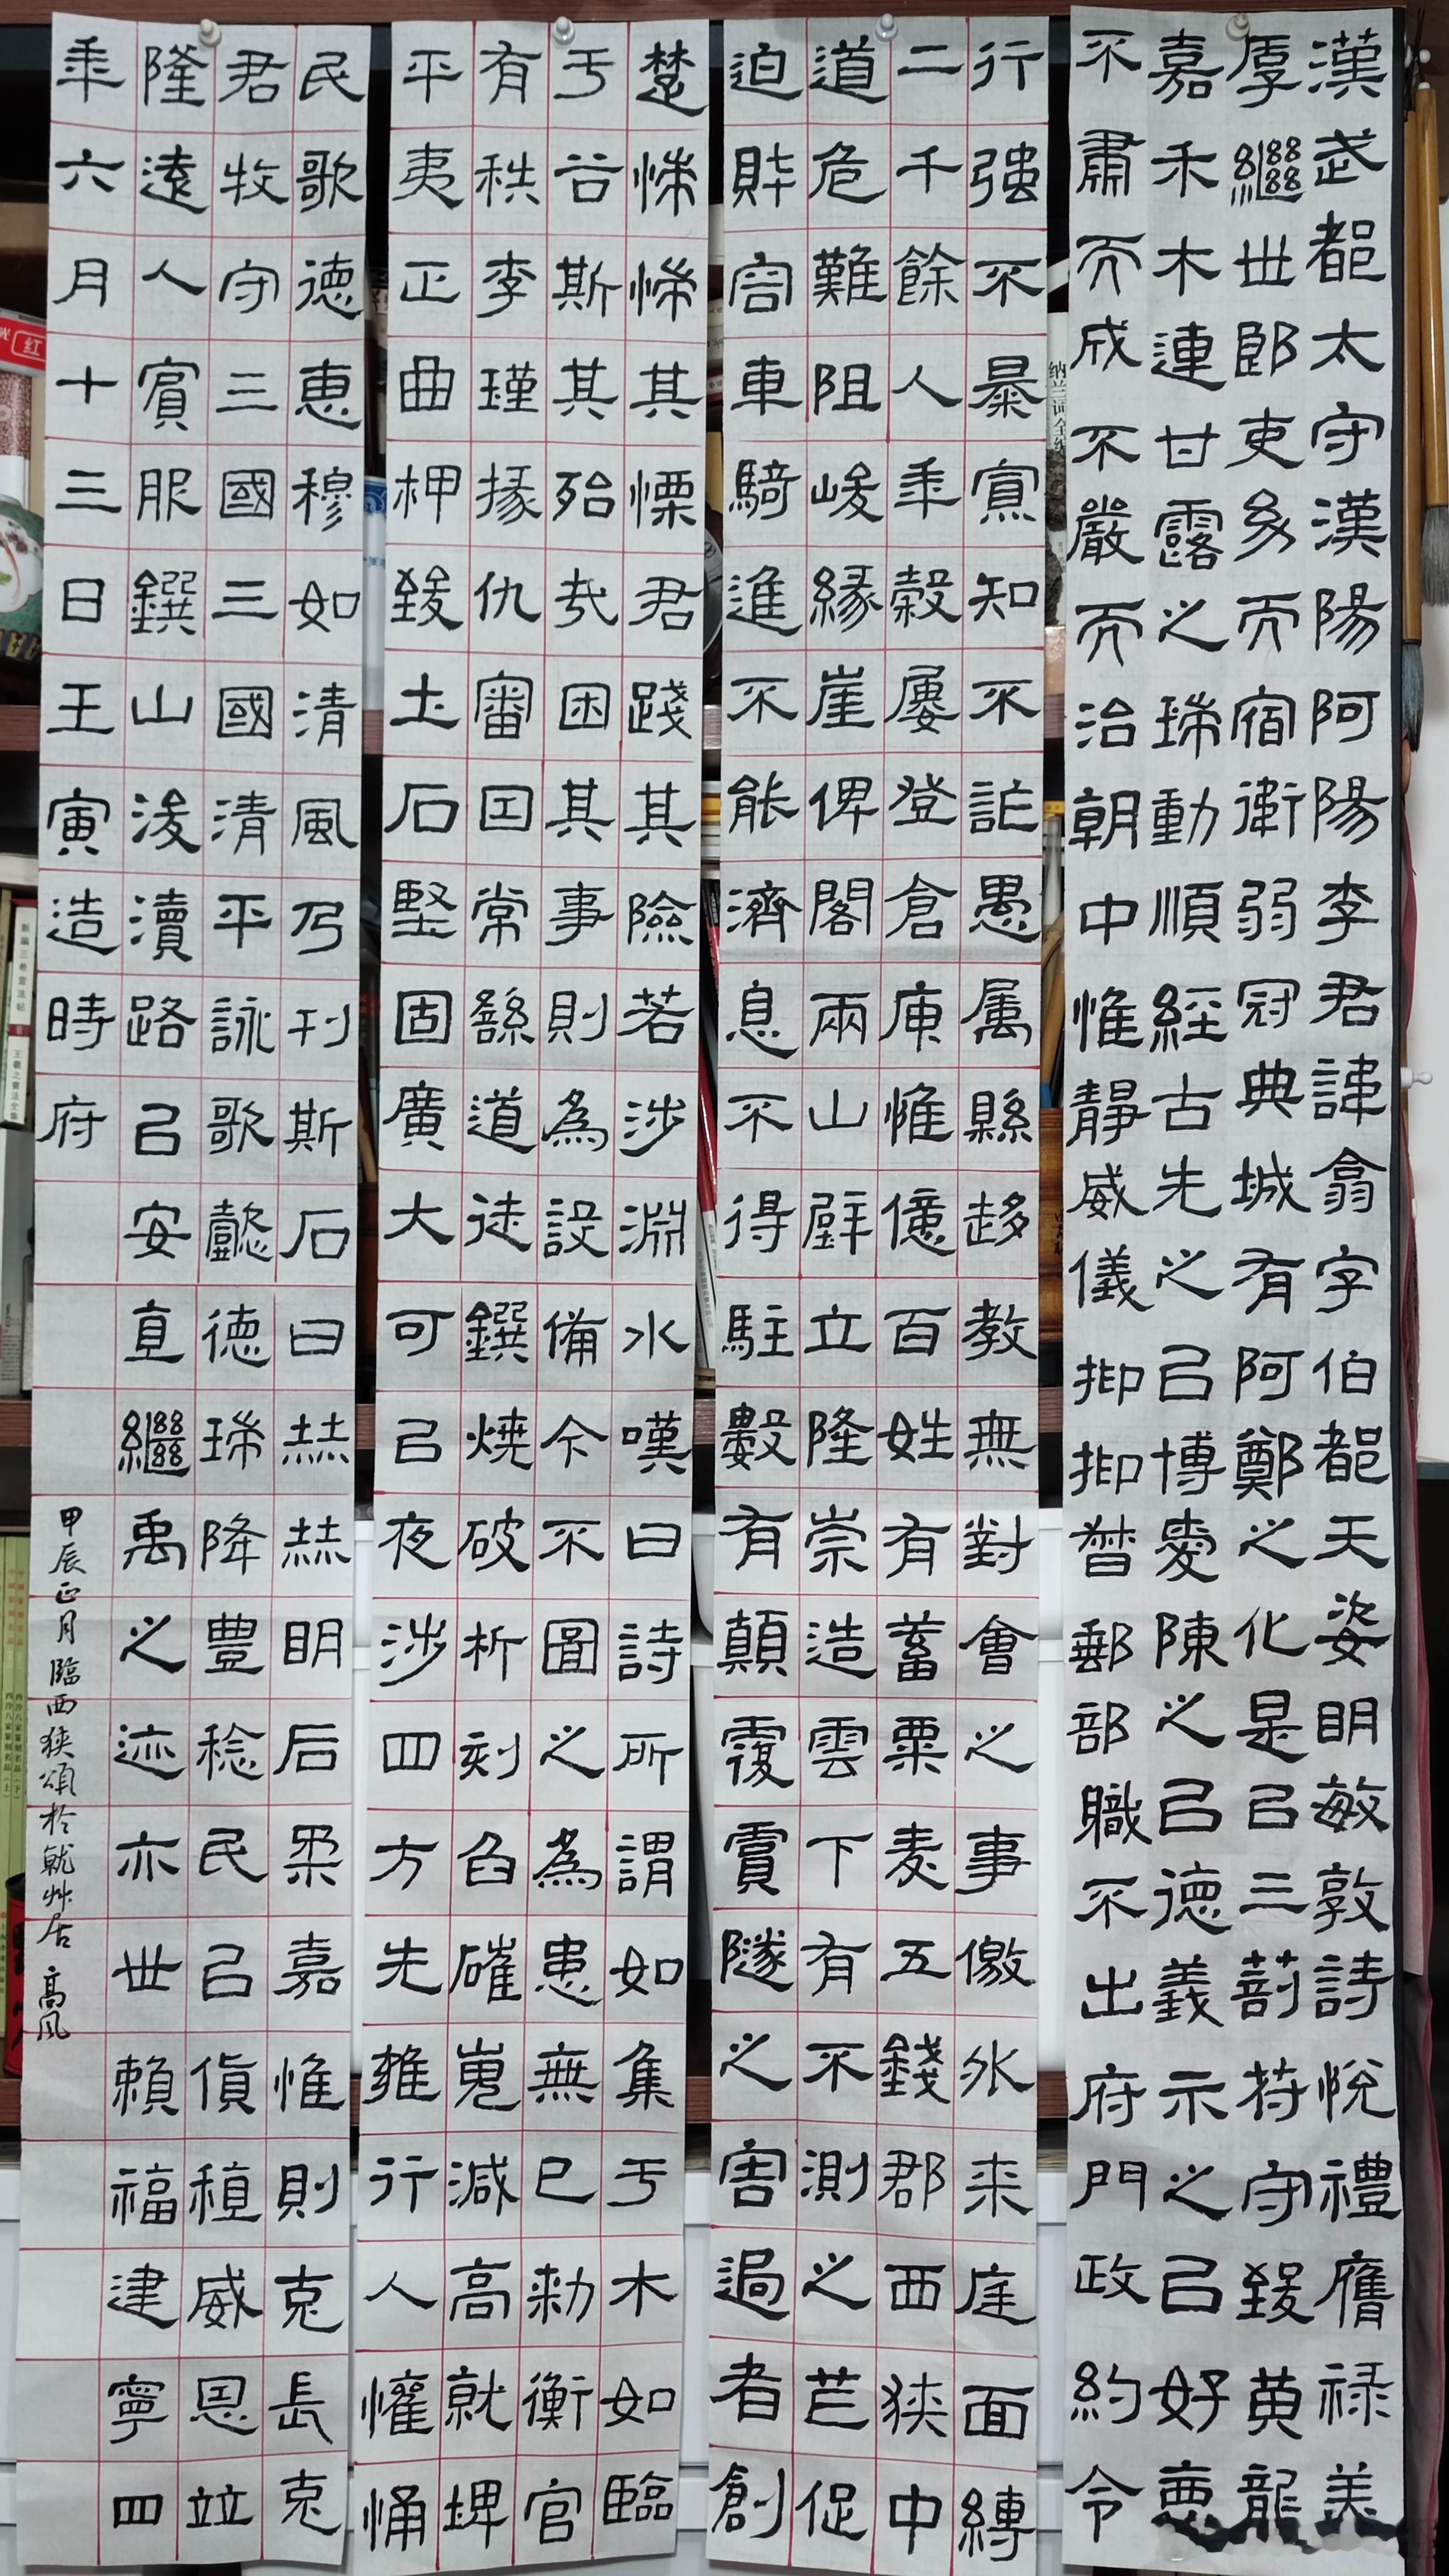 漢武都太守漢陽阿陽李君諱翕字伯都天姿明敏敦詩悅禮膺祿美
厚繼世郎吏幼而宿衛弱冠典城有阿鄭之化是以三剖符守致黃龍
嘉禾木連甘露之瑞動順經古先之以博愛陳之以德義示之以好惡
不肅而成不嚴而治朝中惟靜威儀抑抑督郵部職不出府門政約令
行強不暴寡知不詐愚属縣趍教無對會之事儌外来庭面縛
二千餘人年穀屢登倉庾惟億百姓有蓄粟麦五錢郡西狹中
道危難阻峻緣崖俾閣兩山壁立隆崇造雲下有不測之促
迫財容車騎進不能濟息不得駐數有顛覆霣隧之害過者創
楚惴惴其慄君踐其險若涉淵水嘆曰詩所謂如集于木如臨
于谷斯其殆哉困其事則為設備今不圖之為患無已敕衡官
有秩李瑾掾仇審因常繇道徒鐉燒破析刻臽磪嵬減高就埤
平夷正曲柙致土石堅固廣大可以夜涉四方无雍行人懽悀
民歌德惠穆如清風乃刊斯石曰赫赫明后柔嘉惟則克長克
君牧守三國三國清平詠歌懿德瑞降豐稔民以貨稙威恩竝
隆遠人賓服鐉山浚瀆路以安直繼禹之迹亦世賴福建寧四
年六月十三日壬寅造時府
甲辰正月臨西狹頌於就艸居 高風
纳兰词全编
新編三希堂法帖
王羲之書法全集
红